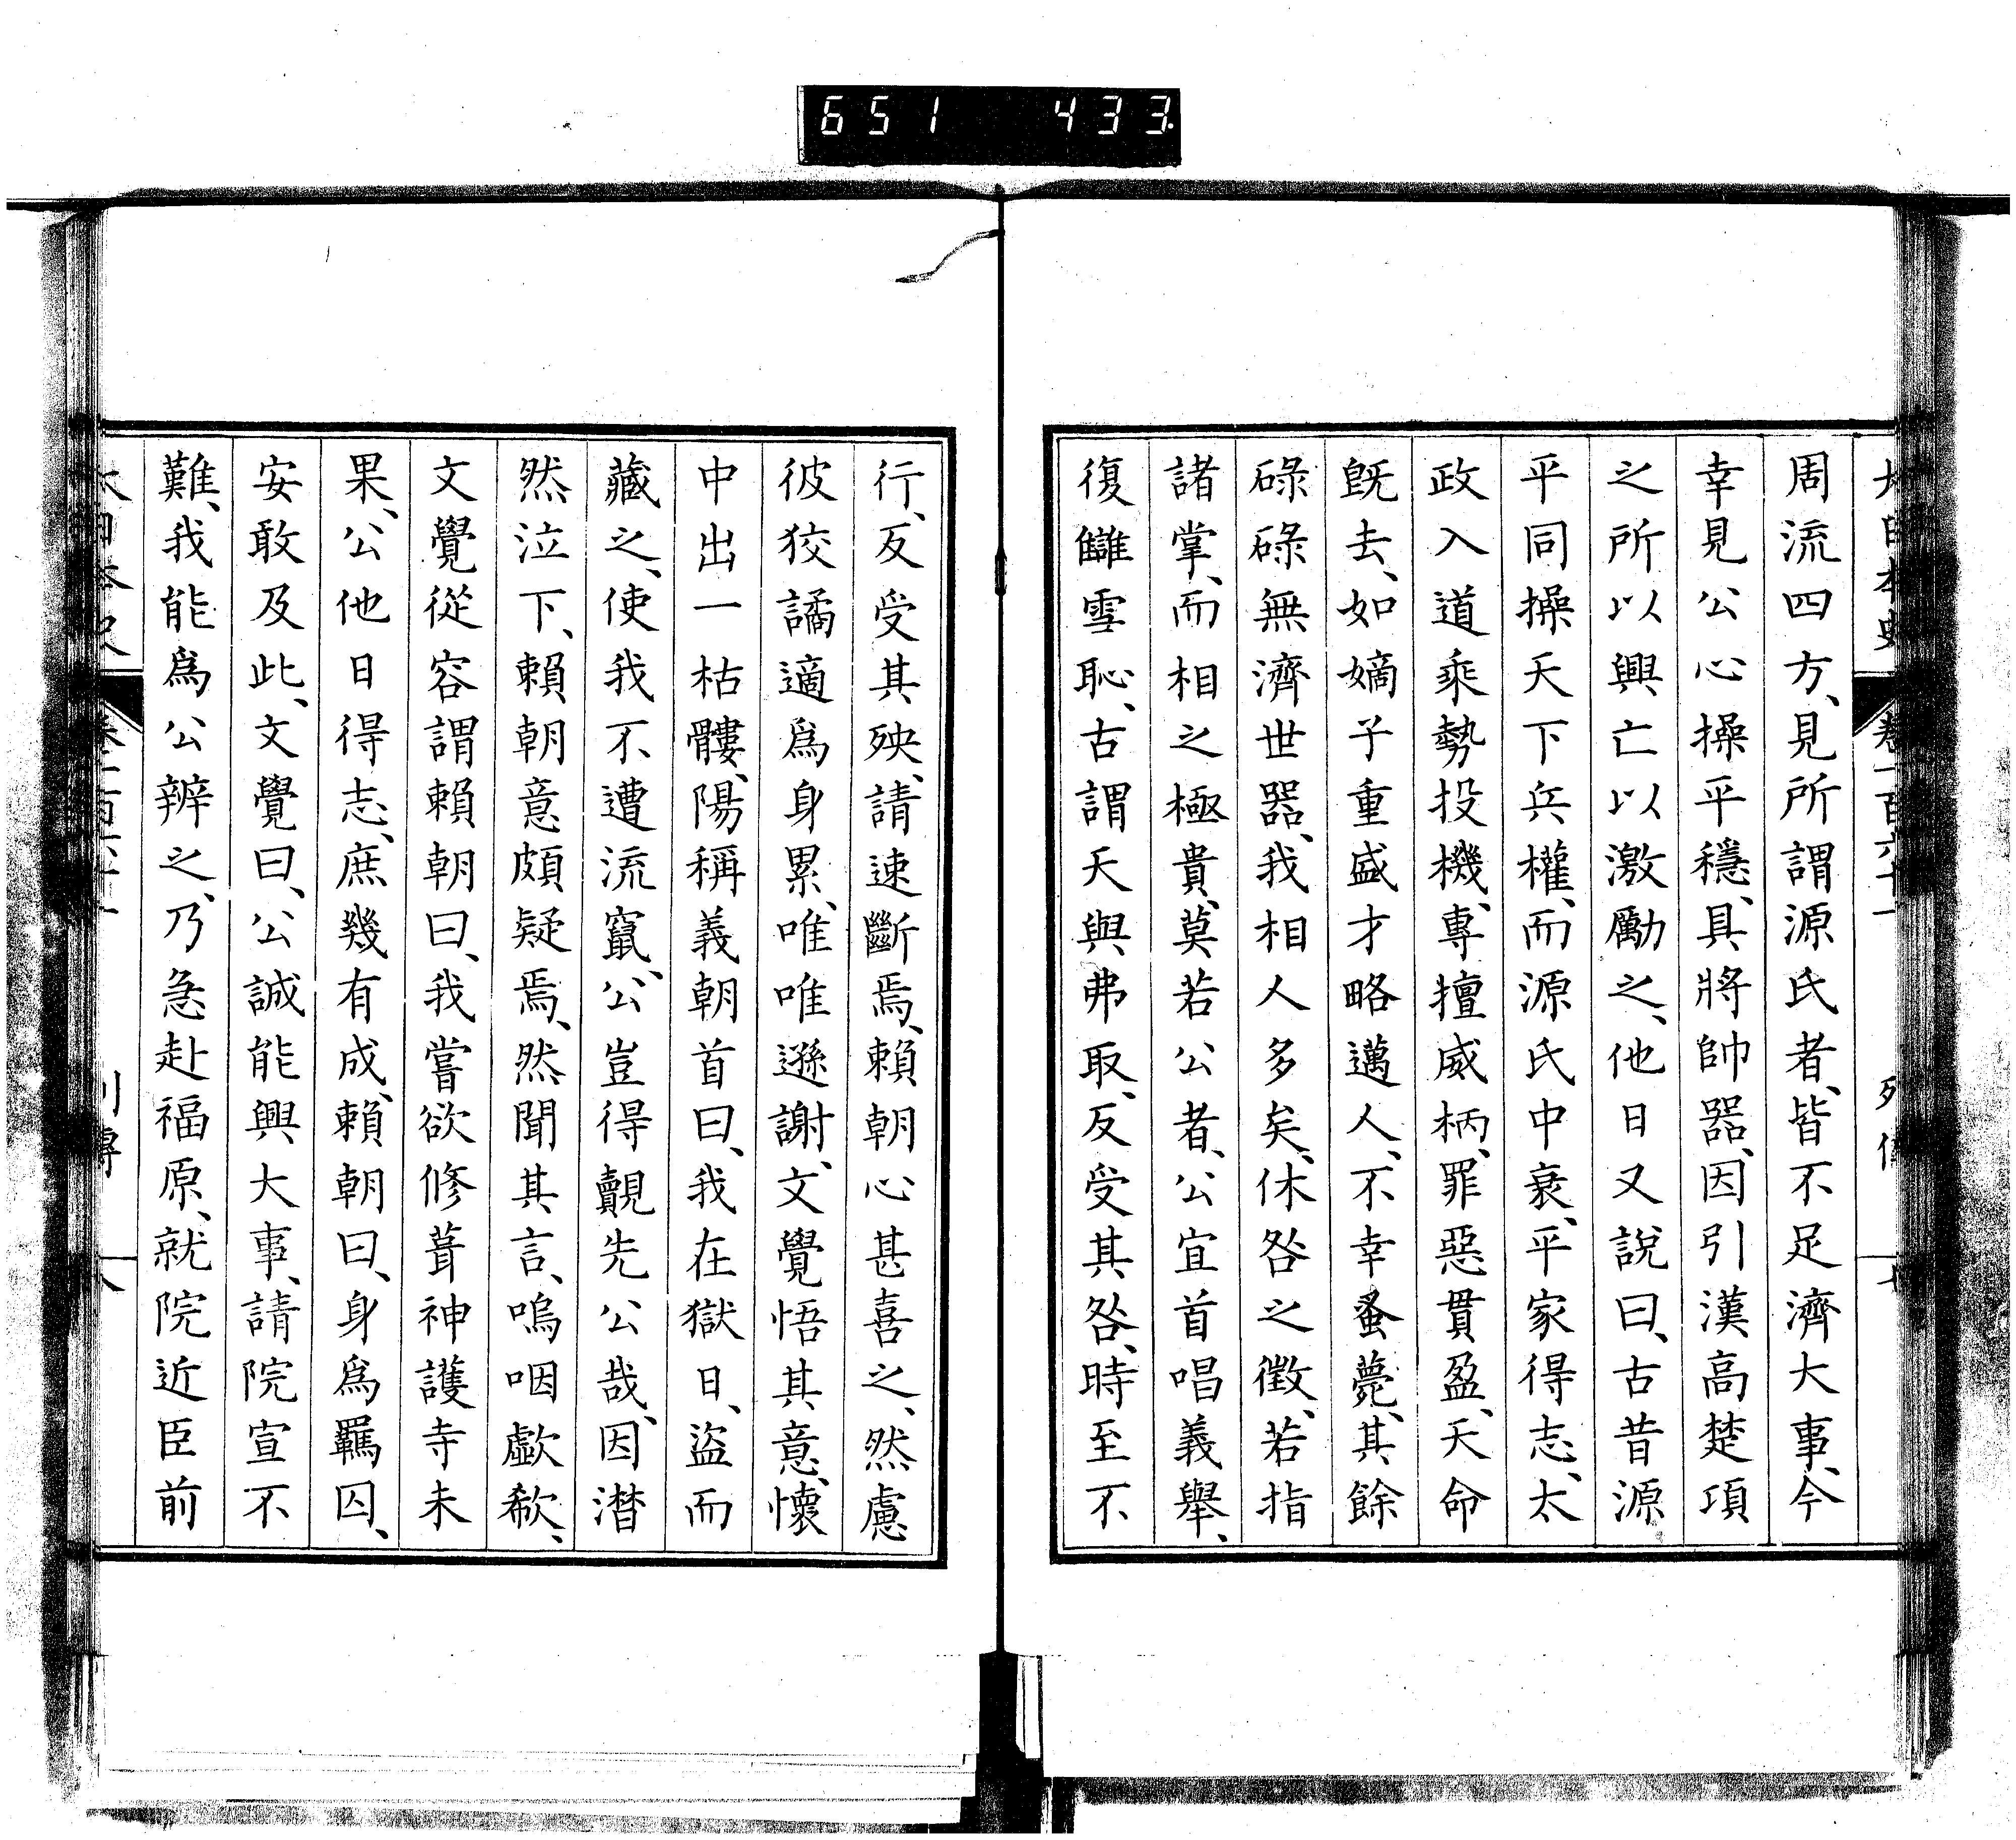 651 433
大日本史 卷一百六十一 列傳 十七
周流四方、見所謂源氏者、皆不足濟大事、今
幸見公心操平穩、具將帥器、因引漢高楚項
之所以興亡以激勵之、他日又說曰、古昔源
平同操天下兵權、而源氏中衰、平家得志、太
政入道乘勢投機、專擅威柄、罪惡貫盈、天命
旣去、如嫡子重盛才略邁人、不幸蚤薨、其餘
碌碌無濟世器、我相人多矣、休咎之徵、若指
諸掌、而相之極貴、莫若公者、公宜首唱義舉、
復讎雪恥、古謂天與弗取、反受其咎、時至不
行、反受其殃、請速斷焉、賴朝心甚喜之、然慮
彼狡譎適爲身累、唯唯遜謝、文覺悟其意、懷
中出一枯髏、陽稱義朝首曰、我在獄日、盜而
藏之、使我不遭流竄、公豈得覿先公哉、因潛
然泣下、賴朝意頗疑焉、然聞其言、嗚咽歔欷、
文覺從容謂賴朝曰、我嘗欲修葺神護寺未
果、公他日得志、庶幾有成、賴朝曰、身爲羈囚、
安敢及此、文覺曰、公誠能興大事、請院宣不
難、我能爲公辨之、乃急赴福原、就院近臣前
大日本史 卷一百六十一 列傳 八